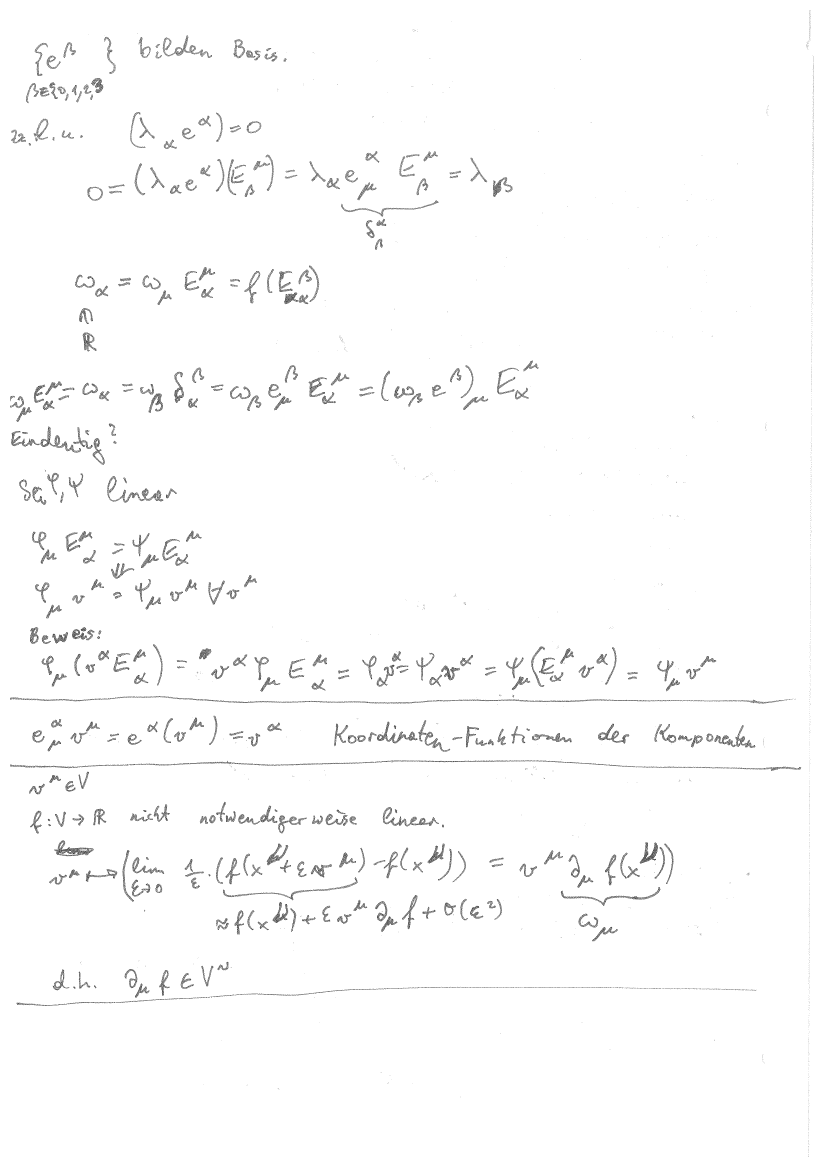 {e^β } bilden Basis.
β∈{0,1,2,3
zz. l.u. (λ_α e^α) = 0
0 = (λ_α e^α)(E^μ_β) = λ_α e^α_μ E^μ_β = λ_β
δ^α_β
ω_α = ω_μ E^μ_α = f(E^β_α)
∩
ℝ
ω_μ E^μ_α = ω_α = ω_β δ^β_α = ω_β e^β_μ E^μ_α = (ω_β e^β)_μ E^μ_α
Eindeutig?
Sei φ, ψ linear
φ_μ E^μ_α = ψ_μ E^μ_α
⇓
φ_μ v^μ = ψ_μ v^μ ∀v^μ
Beweis:
φ_μ (v^α E^μ_α) = v^α φ_μ E^μ_α = φ_α v^α = ψ_α v^α = ψ_μ (E^μ_α v^α) = ψ_μ v^μ
e^α_μ v^μ = e^α(v^μ) = v^α Koordinaten-Funktionen der Komponenten
v^μ ∈ V
f: V → ℝ nicht notwendigerweise linear.
v^μ ↦ (lim_{ε→0} 1/ε · (f(x^μ + εv^μ) - f(x^μ)) = v^μ ∂_μ f(x^μ))
≈ f(x^μ) + εv^μ ∂_μ f + O(ε²) ω_μ
d.h. ∂_μ f ∈ V~